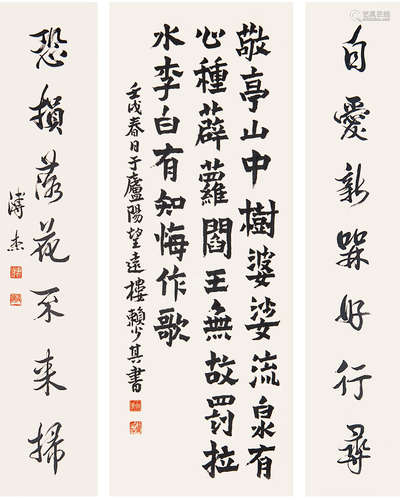 自愛新好行尋
敬亭山中樹婆娑流泉有
心種薜蘿閻王無故罰拉
水李白有知悔作歌
壬戌春日于廬陽望遠樓賴少其書
恐損落花不來掃
溥杰